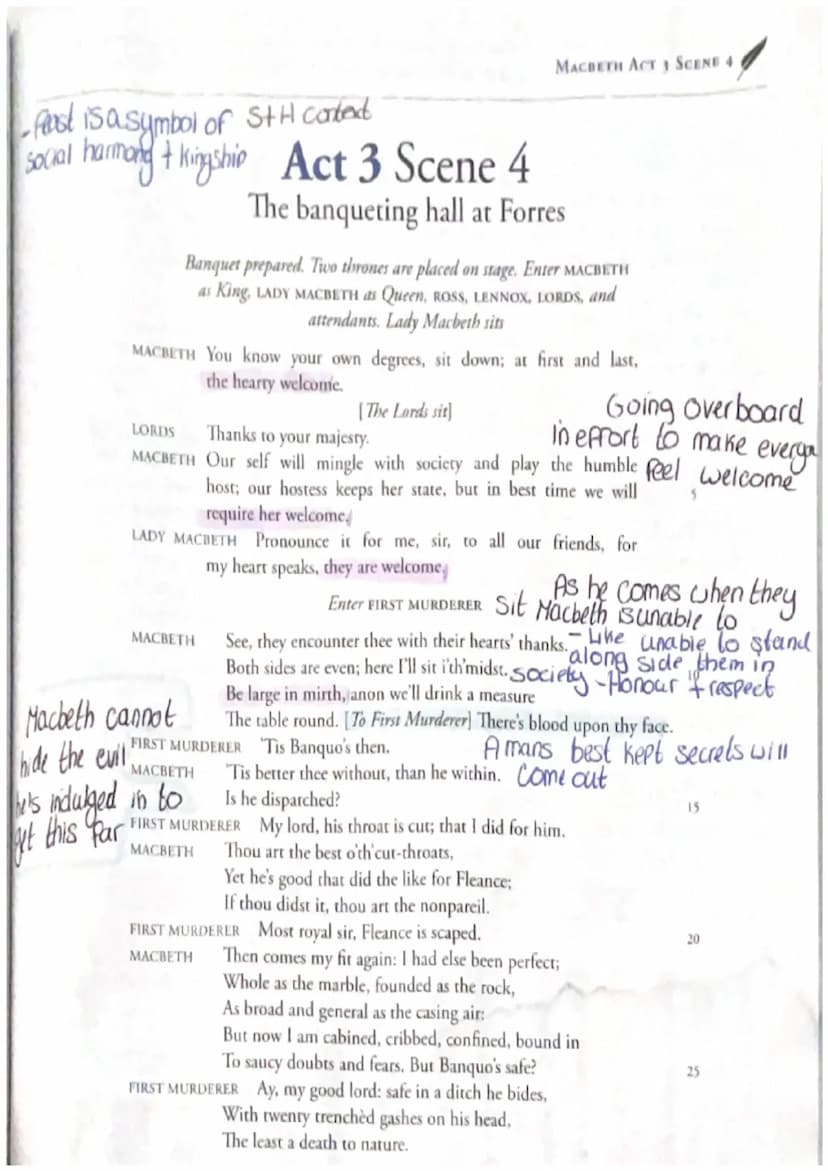 MACBETH ACT 3 SCENE 4
- feast is a symbol of S+H context
social harmony + kingship
Act 3 Scene 4
The banqueting hall at Forres
Banquet prepared. Two thrones are placed on stage. Enter MACBETH
as King, LADY MACBETH as Queen, ROSS, LENNOX, LORDS, and
attendants. Lady Macbeth sits
MACBETH You know your own degrees, sit down; at first and last,
the hearty welcome.
[The Lords sit]
Going overboard
in effort to make everyo
feel welcome
LORDS Thanks to your majesty.
MACBETH Our self will mingle with society and play the humble
host; our hostess keeps her state, but in best time we will
require her welcome.
LADY MACBETH Pronounce it for me, sir, to all our friends, for
my heart speaks, they are welcome.
Enter FIRST MURDERER
As he comes when they
sit Macbeth is unable to
- Like unable to stand
along side them in
society - Honour + respect
MACBETH See, they encounter thee with their hearts' thanks.
Both sides are even; here I'll sit i'th'midst.
Be large in mirth, anon we'll drink a measure
The table round. [To First Murderer] There's blood upon thy face.
Macbeth cannot
hide the evil
he's indulged in to
get this far
FIRST MURDERER 'Tis Banquo's then.
A mans best kept secrets will
come out
MACBETH 'Tis better thee without, than he within.
Is he disparched? 15
FIRST MURDERER My lord, his throat is cut; that I did for him.
MACBETH Thou art the best o'th'cut-throats,
Yet he's good that did the like for Fleance;
If thou didst it, thou art the nonpareil.
FIRST MURDERER Most royal sir, Fleance is scaped. 20
MACBETH Then comes my fit again: I had else been perfect;
Whole as the marble, founded as the rock,
As broad and general as the casing air:
But now I am cabined, cribbed, confined, bound in
To saucy doubts and fears. But Banquo's safe? 25
FIRST MURDERER Ay, my good lord: safe in a ditch he bides,
With twenty trenchèd gashes on his head,
The least a death to nature.